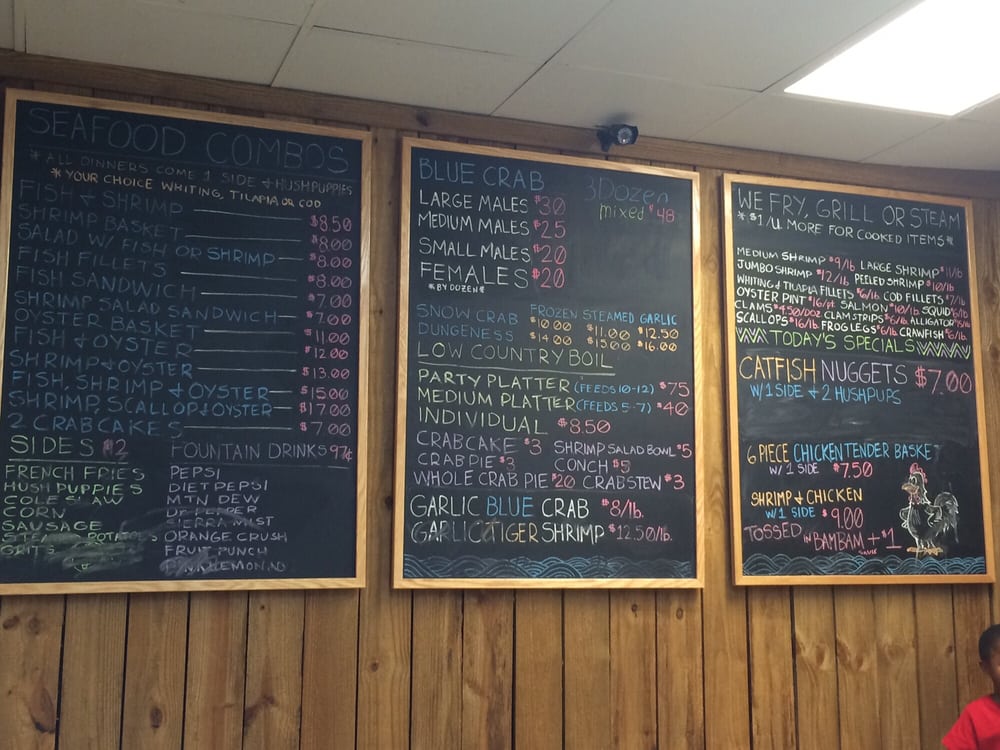 SEAFOOD COMBOS
*ALL DINNERS COME 1 SIDE & HUSHPUPPIES
*YOUR CHOICE WHITING, TILAPIA OR COD
FISH & SHRIMP $8.50
SHRIMP BASKET $8.00
SALAD W/ FISH OR SHRIMP $8.00
FISH FILLETS $8.00
FISH SANDWICH $7.00
SHRIMP SALAD SANDWICH $7.00
OYSTER BASKET $11.00
FISH & OYSTER $12.00
SHRIMP & OYSTER $13.00
FISH, SHRIMP & OYSTER $15.00
SHRIMP, SCALLOP & OYSTER $17.00
2 CRABCAKES $7.00
SIDES $2
FRENCH FRIES
HUSH PUPPIES
COLE SLAW
CORN
SAUSAGE
GRITS
FOUNTAIN DRINKS 97¢
PEPSI
DIET PEPSI
MTN DEW
DR PEPPER
SIERRA MIST
ORANGE CRUSH
FRUIT PUNCH
BLUE CRAB
3 Dozen
mixed $48
LARGE MALES $30
MEDIUM MALES $25
SMALL MALES $20
FEMALES $20
*BY DOZEN*
FROZEN STEAMED GARLIC
SNOW CRAB $10.00 $11.00 $12.50
DUNGENESS $14.00 $15.00 $16.00
LOW COUNTRY BOIL
PARTY PLATTER (FEEDS 10-12) $75
MEDIUM PLATTER (FEEDS 5-7) $40
INDIVIDUAL $8.50
CRABCAKE $3 SHRIMP SALAD BOWL $5
CRAB PIE $3 CONCH $5
WHOLE CRAB PIE $20 CRAB STEW $3
GARLIC BLUE CRAB $8/lb.
GARLIC TIGER SHRIMP $12.50/lb.
WE FRY, GRILL OR STEAM
*$1/LL MORE FOR COOKED ITEMS*
MEDIUM SHRIMP $9/lb LARGE SHRIMP $11/lb
JUMBO SHRIMP $12/lb PEELED SHRIMP $10/lb
WHITING & TILAPIA FILLETS $6/lb COD FILLETS $7/lb
OYSTER PINT $16/pt SALMON $10/lb SQUID $6/lb
CLAMS $4.50/DOZ CLAM STRIPS $6/lb ALLIGATOR $15/lb
SCALLOPS $16/lb FROG LEGS $6/lb CRAWFISH $6/lb
TODAY'S SPECIALS
CATFISH NUGGETS $7.00
W/1 SIDE & 2 HUSHPUPS
6 PIECE CHICKEN TENDER BASKET
W/1 SIDE $7.50
SHRIMP & CHICKEN
W/1 SIDE $9.00
TOSSED IN BAMBAM SAUCE +$1